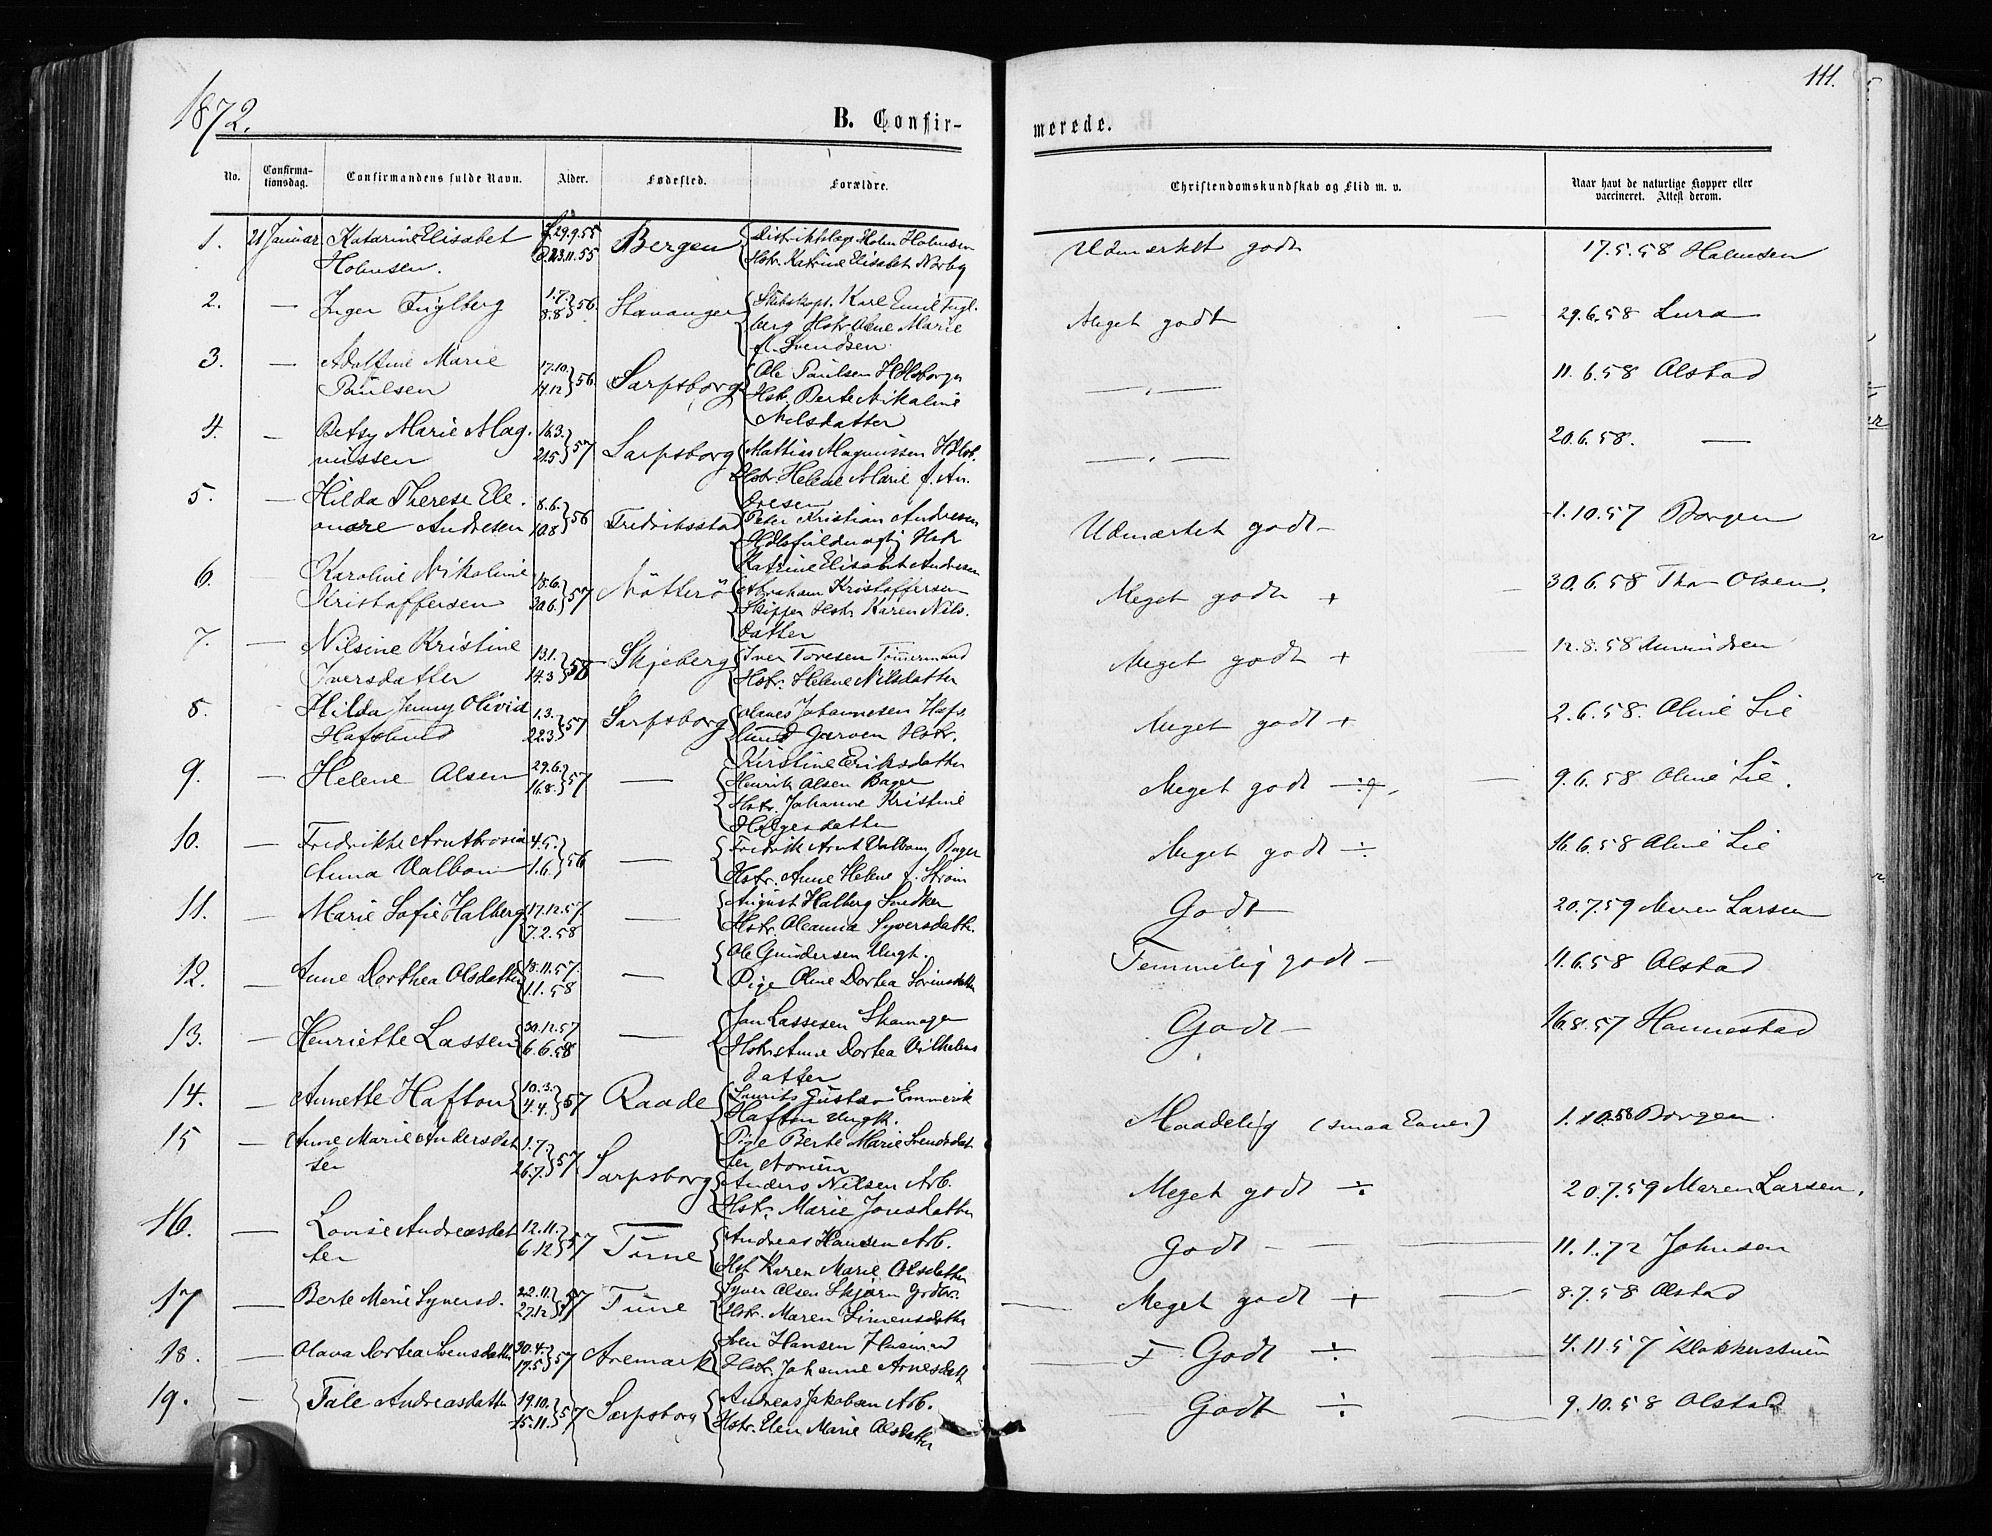 1872.
111.
B. Confir-
merede.
No.
Confirma-
tionsdag.
Confirmandens fulde Navn.
Alder.
Fødested.
Forældre.
Christendomskundskab og Flid m. v.
Naar havt de naturlige Kopper eller
vaccineret. Attest derom.
1. 21 Januar Katarine Elisabet
Holmsen.
f. 29.9.55
d. 23.11.55
Bergen
Distriktslæge Holm Holmsen
Hstr. Katrine Elisabet Nørbeg
Udmærket godt
17.5.58 Holmsen
2. — Inger Fuglberg
1.7.
8.8 } 56.
Stavanger
Skibskapt. Karl Emil Fugl-
berg Hstr. Ane Marie
f. Svendsen.
Meget godt
29.6.58 Lura
3. — Adolfine Marie
Paulsen
17.10.
14.12 } 56.
Sarpsborg
Ole Paulsen Hdlsborger
Hstr. Berte Nikoline
Nilsdatter
— „ —
11.6.58 Alstad
4. — Betsy Marie Mag-
nussen
16.3.
21.5 } 57
Sarpsborg
Mathias Magnussen Hdlsb.
Hstr. Helene Marie f. An-
dresen
— „ —
20.6.58. —
5. — Hilda Therese Ele-
onore Andresen
8.6.
10.8 } 56
Fredriksstad
Peter Kristian Andresen
Hdlsfuldmægtig Hstr.
Katrine Elisabet Andresen
Udmærket godt —
1.10.57 Borgen
6. Karoline Nikoline
Kristoffersen
18.6.
30.6. } 57
Nötterö
Abraham Kristoffersen
Skipper Hstr. Karen Nils-
datter
Meget godt +
30.6.58 Thor Olsen.
7. — Nilsine Kristine
Iversdatter
13.1.
14.3 } 58
Skjeberg
Iver Toresen Tømmermand
Hstr. Helene Nilsdatter
Meget godt +
12.8.58 Amundsen
8. Hilda Jenny Olivia
Hafslund
1.3.
22.3 } 57
Sarpsborg
Johannesen Hafs-
lund Garver Hstr.
Kirstine Eriksdatter
Meget godt +
2.6.58. Oline Lie
9. — Helene Olsen
29.6.
16.8. } 57
—
Henrik Olsen Bager
Hstr. Johanne Kristine
Helgesdatter
Meget godt ÷
9.6.58 Oline Lie.
10. — Fredrikke
Anna Valbom
4.5.
1.6. } 56
—
Fredrik Arnt Valbom Bager
Hstr. Anne Helene f. Strøm
Meget godt ÷
16.6.58 Oline Lie
11. — Marie Sofie Halberg
17.12.57
7.2.58
August Halberg Snedker
Hstr. Oleanna Syversdatter.
Godt —
20.7.59 Maren Larsen
12. — Anne Dorthea Olsdatter
18.11.57.
1.1.58
—
Ole Gundersen Ungk.
Pige Oline Dortea Sørensdatter
Temmelig godt —
11.6.58 Alstad
13. — Henriette Lassen
30.12.57
6.6.58
—
Jan Lassesen Skomager
Hstr. Anne Dortea Vilhelms
datter
Godt —
16.8.57 Hannestad
14. — Annette Hafton
10.3.
4.4. } 57
Raade
Laurits Gustav Emmerik
Hafton Ungk.
Pige Berte Marie Svendsdat-
ter
Maadelig (smaa Evner)
1.10.58 Borgen.
15 — Anne Marie Andersdat-
ter
1.7.
26.7. } 57
Sarpsborg
Anders Nilsen Arb.
Hstr. Marie Jonsdatter
Meget godt ÷
20.7.59 Maren Larsen.
16. — Lovise Andreasdat-
ter
12.11.
6.12 } 57
Tune
Andreas Hansen Arb.
Hst. Karen Marie Olsdatter
Godt — —
11.1.72 Johnsen
17 — Berte Marie Syversd.
22.11.
27.12 } 57
Tune
Syver Olsen Skjørn
Hstr. Maren Simensdatter
Meget godt + —
8.7.58 Alstad
18. — Olava Dortea Svensdatter
30.4.
17.5 } 57
Aremark
Sven Hansen Husmand
Hstr. Johanne Arnesdatt
T Godt ÷ —
4.11.57
19. — Tale Andreasdatter
19.10.
15.11. } 57
Sarpsborg
Andreas Jakobsen Arb.
Hstr. Elen Marie Olsdatter
Godt ÷ —
9.10.58 Olstad